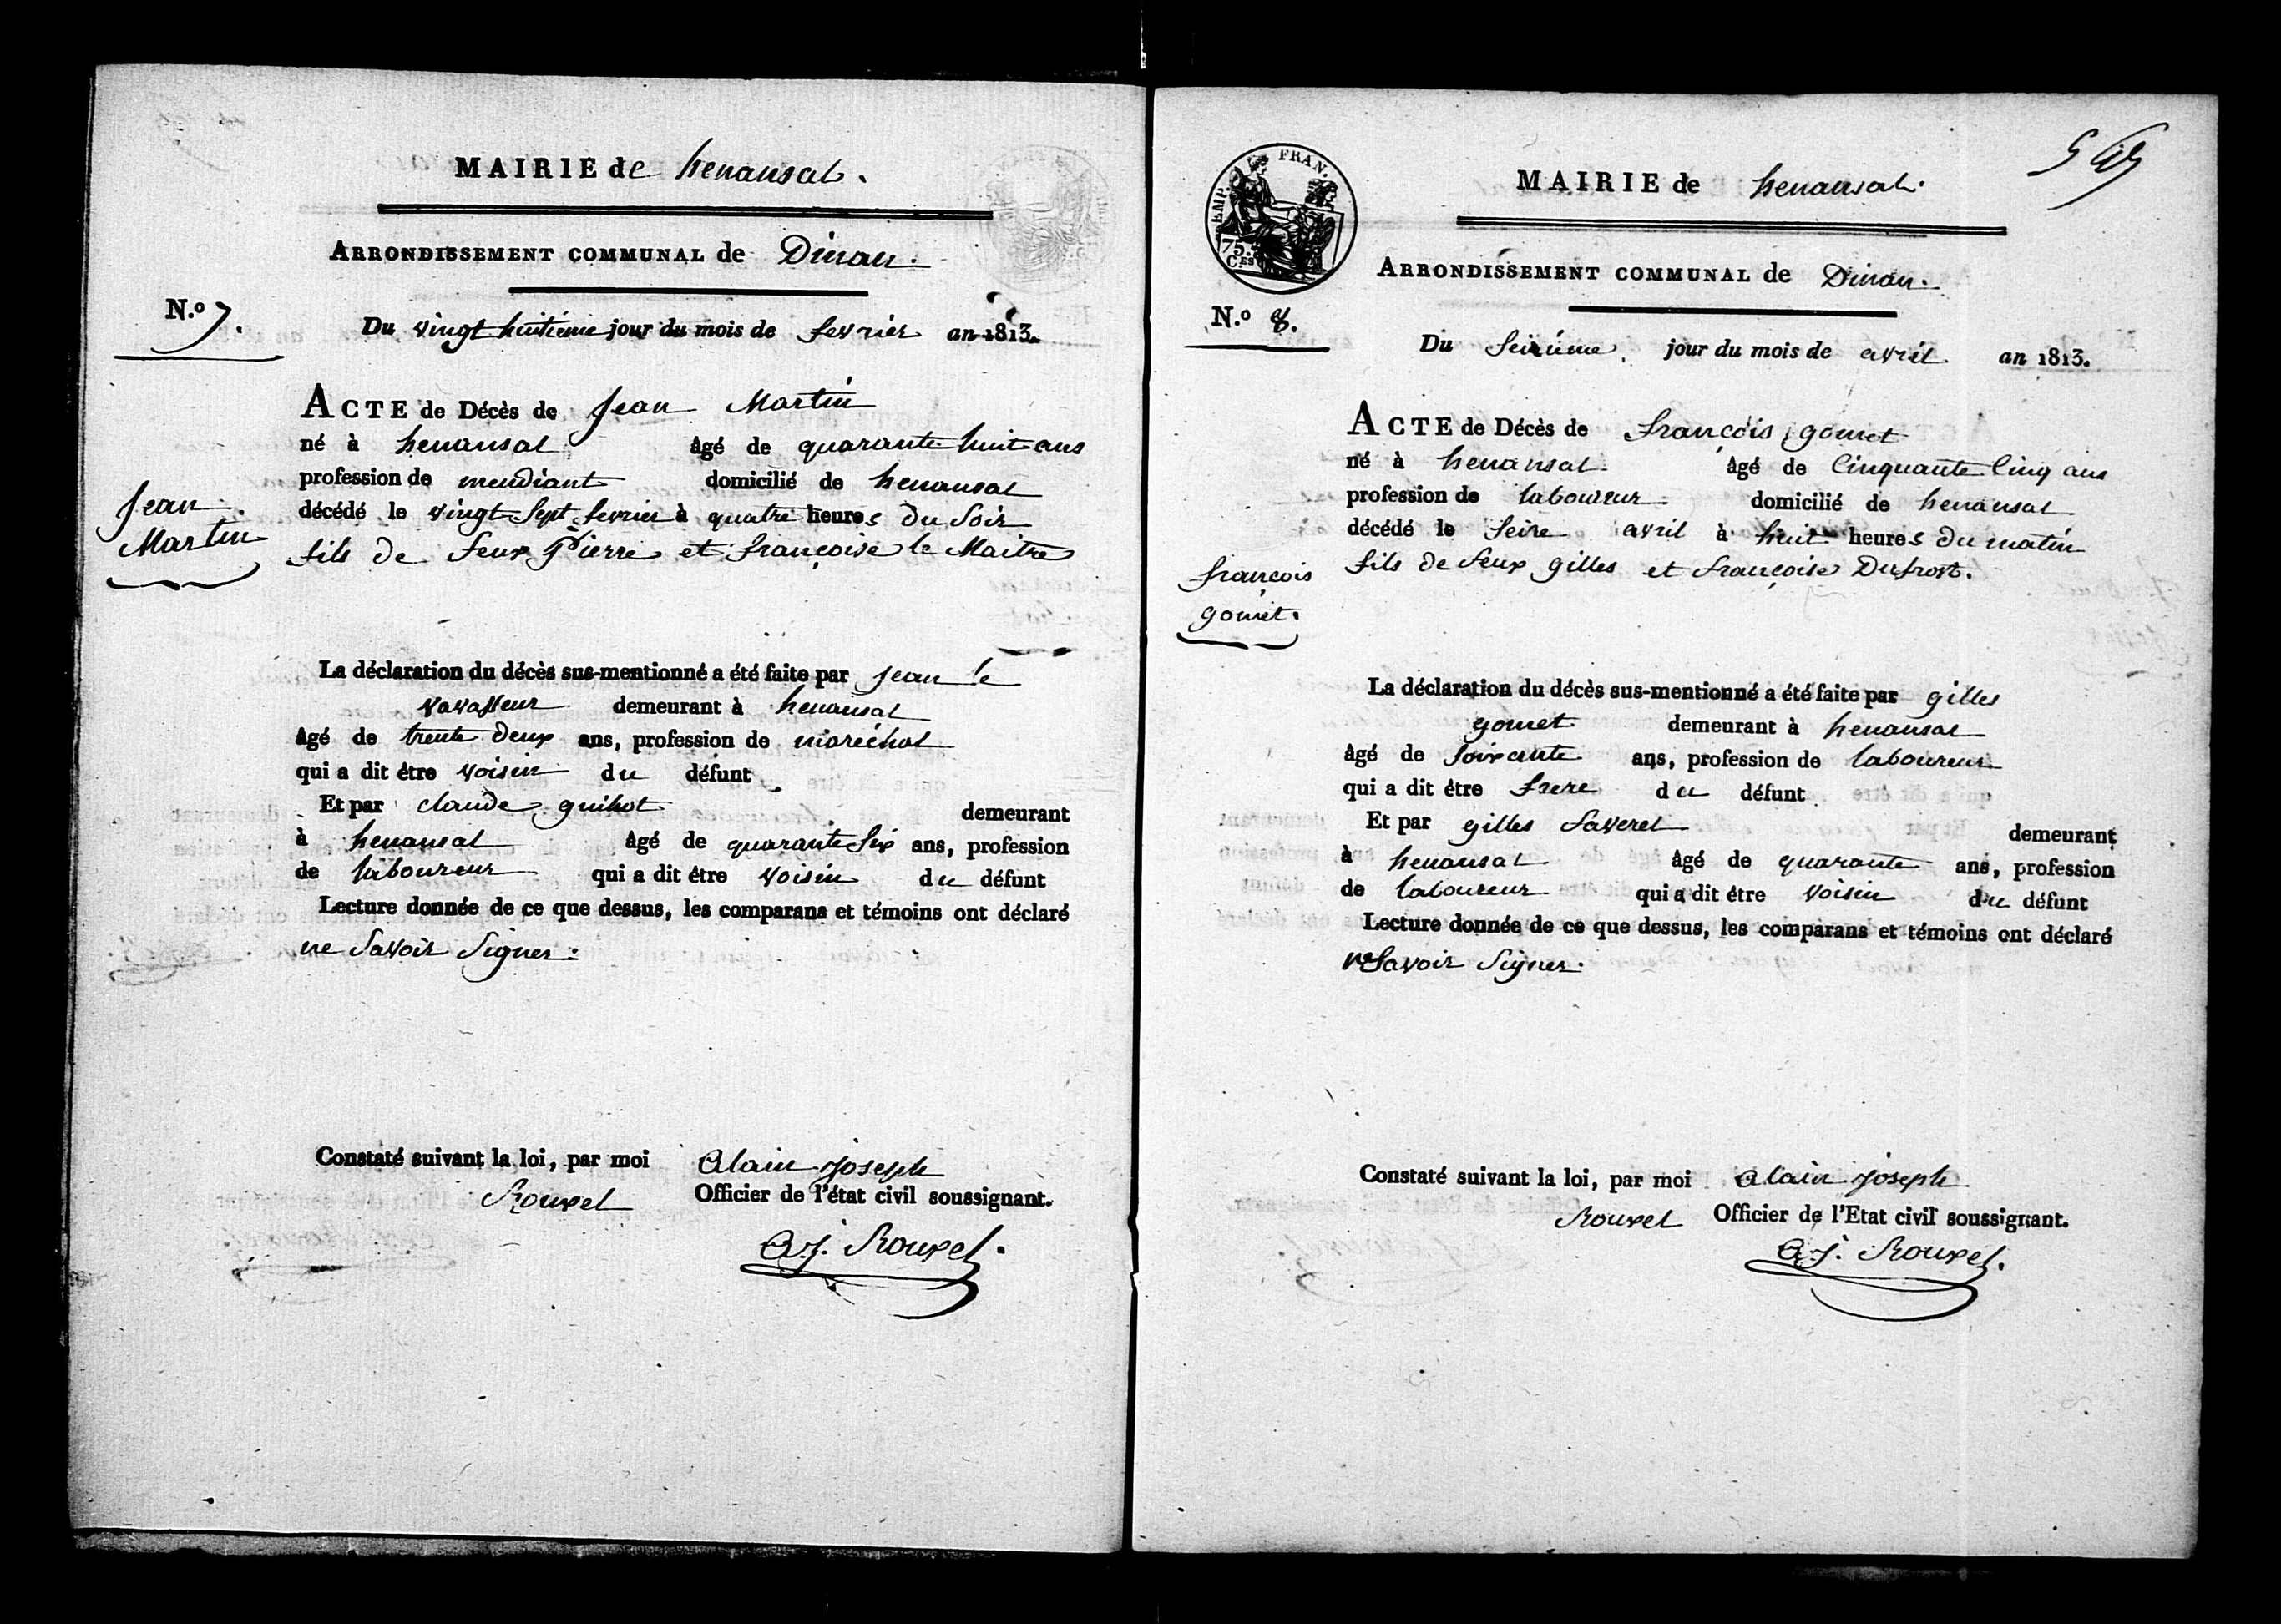 MAIRIE de henansal.
ARRONDISSEMENT COMMUNAL de Dinan.
N.o 7.
Du vingt huitieme jour du mois de fevrier an 1813.
ACTE de Décès de Jean Martin
né à henansal âgé de quarante huit ans
profession de mendiant domicilié de henansal
décédé le vingt sept fevrier à quatre heures du soir
fils de feux Pierre et françoise le Maitre
Jean
Martin
La déclaration du décès sus-mentionné a été faite par jean le
vavasseur demeurant à henansal
âgé de trente deux ans, profession de maréchal
qui a dit être voisin du défunt
Et par claude guihot demeurant
à henansal âgé de quarante six ans, profession
de laboureur qui a dit être voisin du défunt
Lecture donnée de ce que dessus, les comparans et témoins ont déclaré
ne savoir signer.
Constaté suivant la loi, par moi Alain joseph
Rouxel Officier de l'état civil soussignant.
A.j. Rouxel.
EMP. FRAN.
75.
C.ES
MAIRIE de henansal.
ARRONDISSEMENT COMMUNAL de Dinan.
N.o 8.
Du seizieme jour du mois de avril an 1813.
ACTE de Décès de françois gomet
né à henansal âgé de Cinquante Cinq ans
profession de laboureur domicilié de henansal
décédé le seize avril à huit heures du matin
fils de feux gilles et françoise Dufrost.
françois
gomet.
La déclaration du décès sus-mentionné a été faite par gilles
gomet demeurant à henansal
âgé de soixante ans, profession de laboureur
qui a dit être frere du défunt
Et par gilles saveret demeurant
à henansal âgé de quarante ans, profession
de laboureur qui a dit être voisin du défunt
Lecture donnée de ce que dessus, les comparans et témoins ont déclaré
ne savoir signer.
Constaté suivant la loi, par moi alain joseph
Rouxel Officier de l'Etat civil soussignant.
A.j. Rouxel.